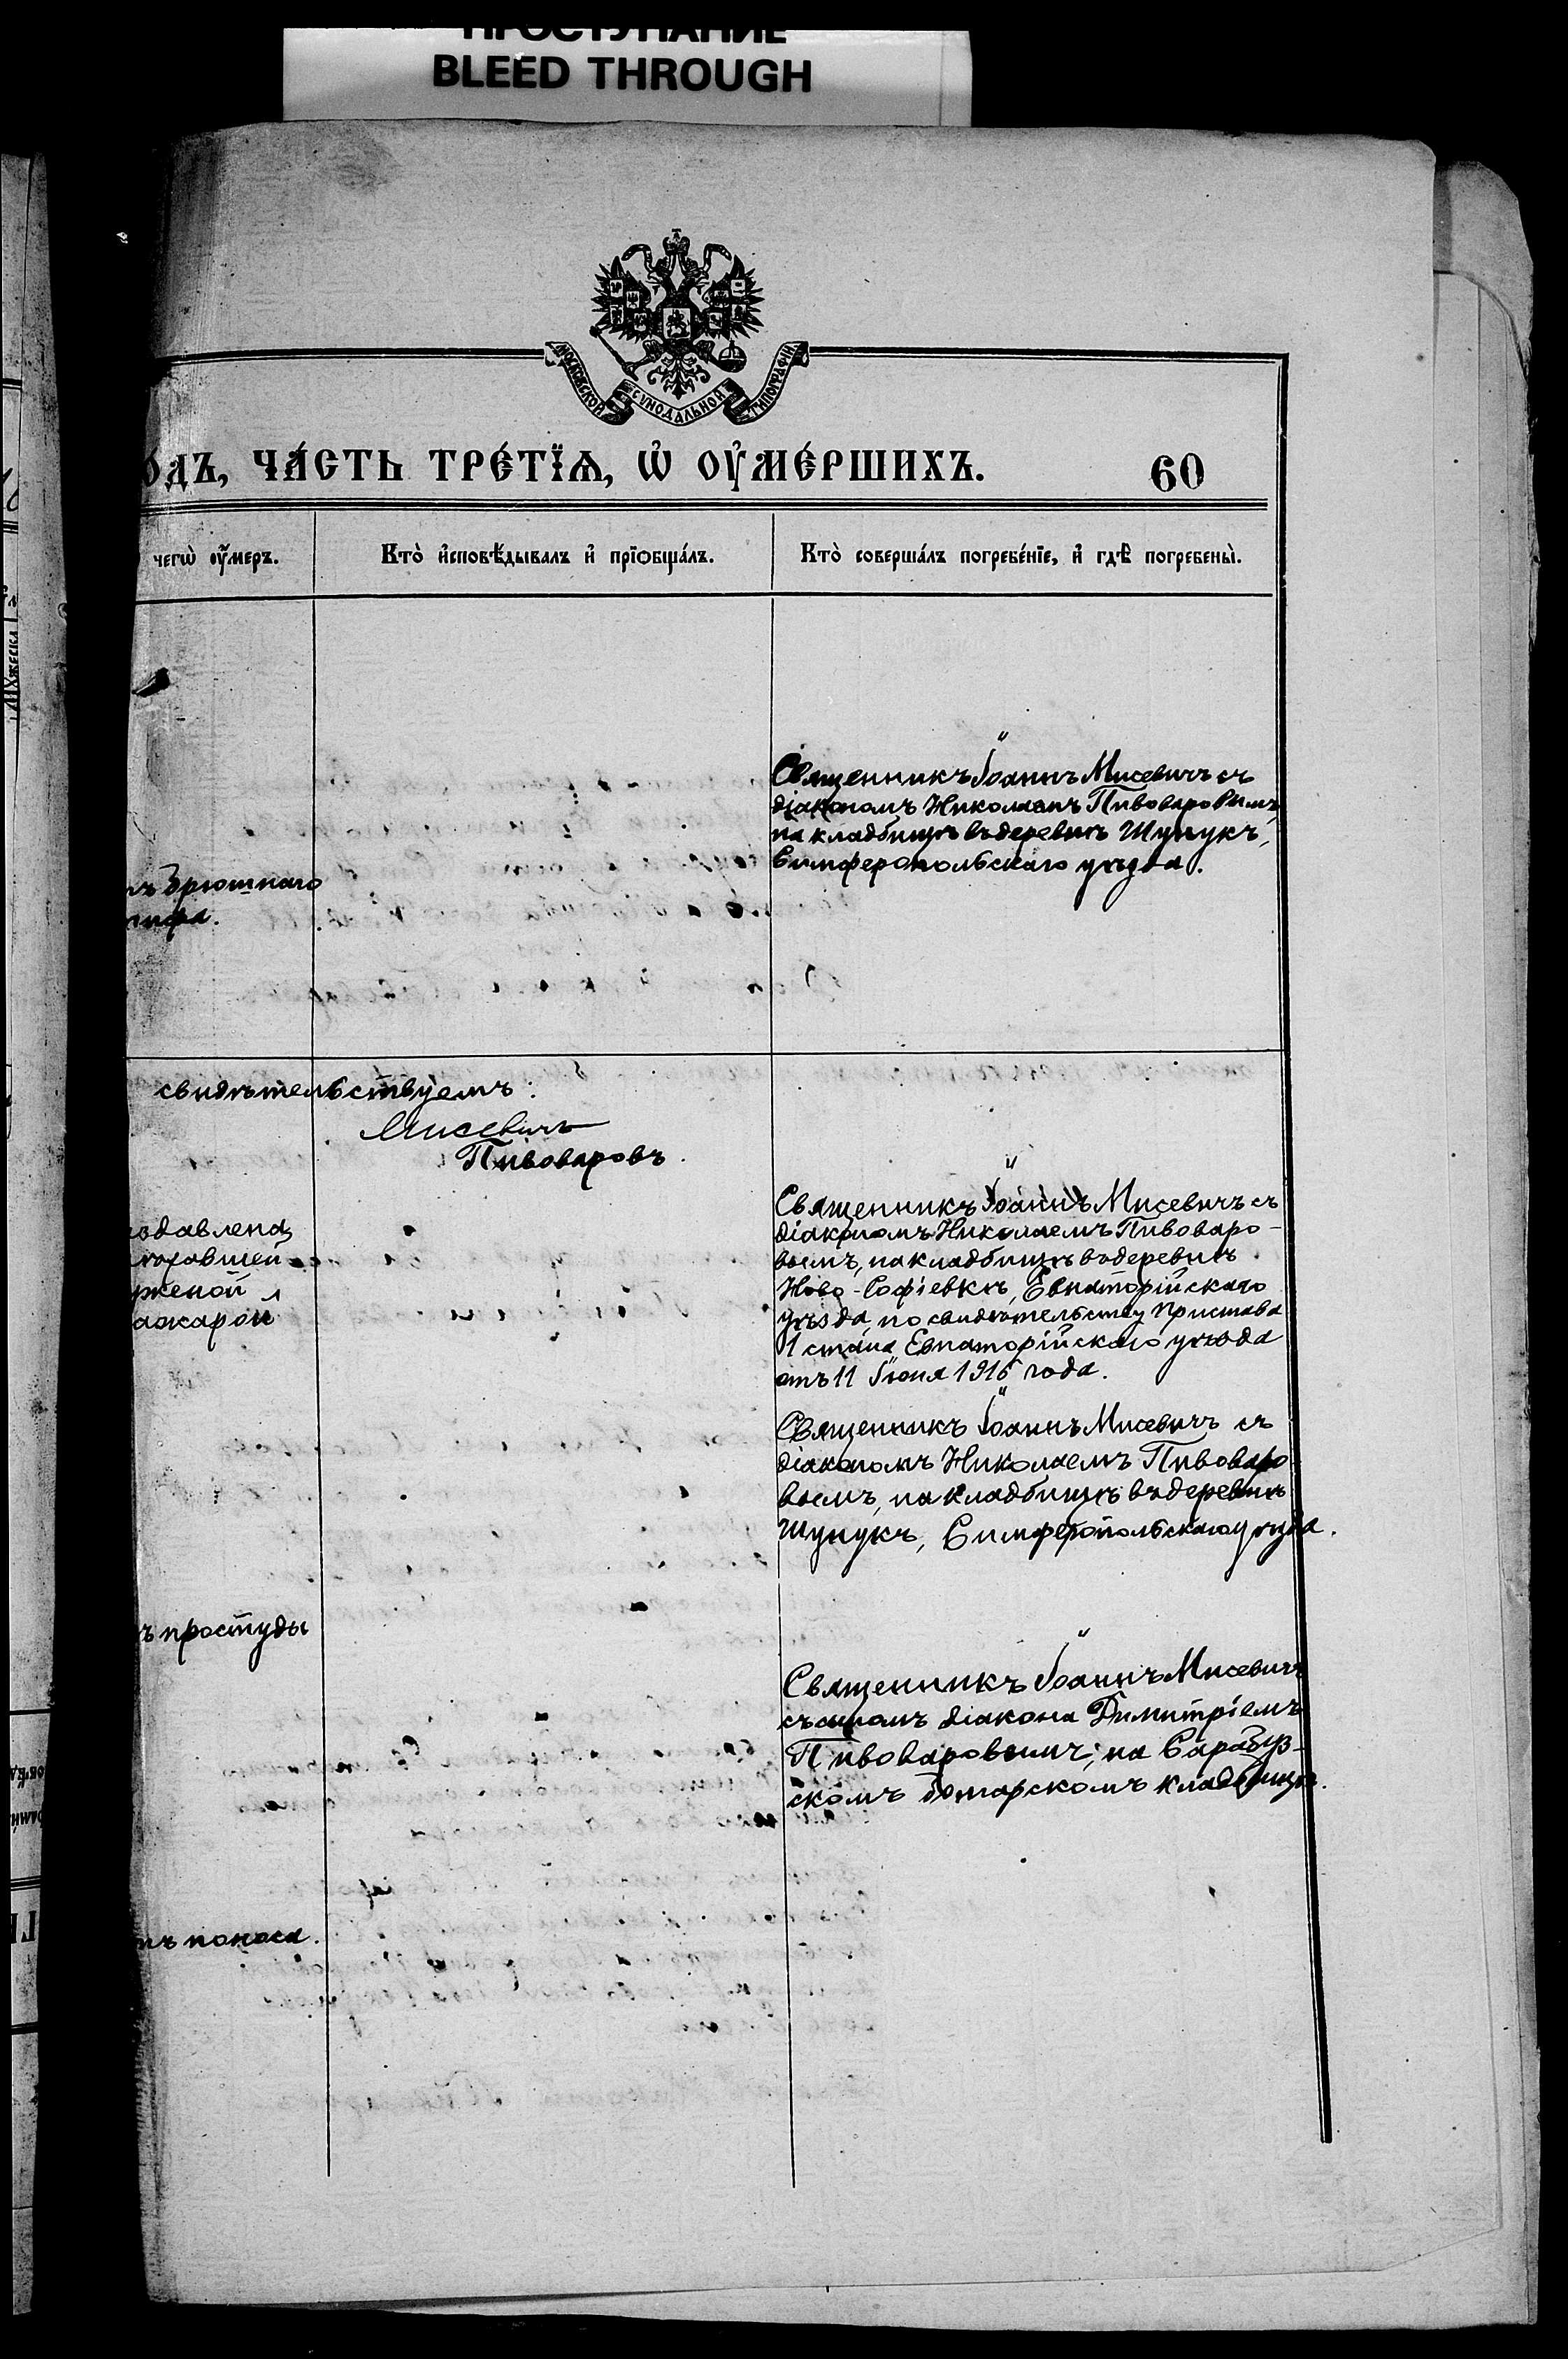 ПРОСТУПАНИЕ
BLEED THROUGH
МОСКОВСКОЙ СѴНОДАЛЬНОЙ ТИПОГРАФІИ
о́дъ, ча́сть тре́тїѧ, ѡ҆ оу҆ме́ршихъ. 60
чегѡ̀ оу҆́меръ.
Кто̀ и҆сповѣ́дывалъ и҆ прїѻбща́лъ.
Кто̀ соверша́лъ погребе́нїе, и҆ гдѣ̀ погребены̀.
Священникъ Іоаннъ Мисевичъ съ
діакономъ Николаемъ Пивоваровымъ,
на кладбищѣ въ деревнѣ Шунукъ,
Симферопольскаго уѣзда.
брюшного
тифа.
свидѣтельствуемъ:
Мисевичъ
Пивоваровъ.
Священникъ Іоаннъ Мисевичъ съ
діакономъ Николаемъ Пивоваро-
вымъ, на кладбищѣ въ деревнѣ
Ново-Софіевкѣ, Евпаторійскаго
уѣзда, по свидѣтельству Пристава
1 стана Евпаторійскаго уѣзда
отъ 11 Іюня 1916 года.
одавлена
ѣхавшей
женой
ажарой
Священникъ Іоаннъ Мисевичъ съ
діакономъ Николаемъ Пивоваро-
вымъ, на кладбищѣ въ деревнѣ
Шунукъ, Симферопольскаго уѣзда.
ъ простуды
Священникъ Іоаннъ Мисевичъ
съ сыномъ діакона Димитріемъ
Пивоваровымъ, на Сарабуз-
скомъ болгарскомъ кладбищѣ.
тъ поноса.